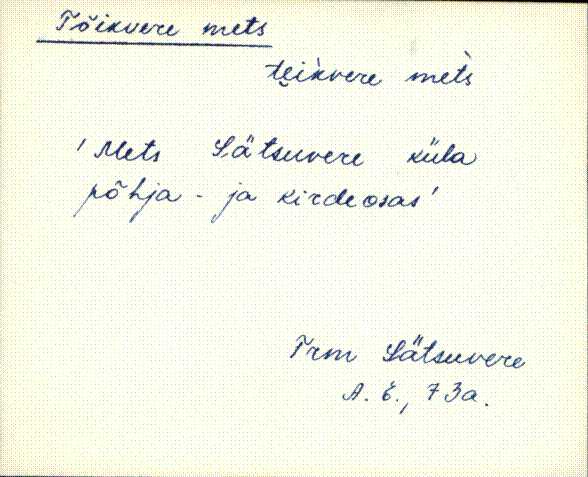 Tõikvere mets
te̮ik̀vere met̀s
'Mets Sätsuvere küla
põhja- ja kirdeosas'
Trm Sätsuvere
A. E., 73a.